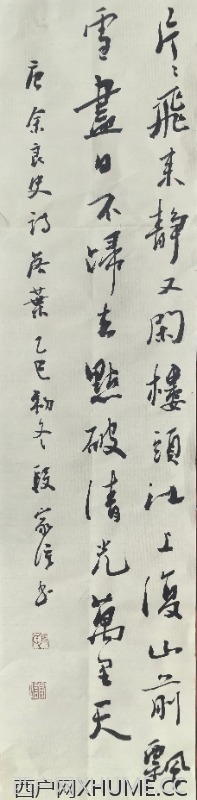 片〻飛来静又閑樓頭江上復山前飄
零盡日不歸去點破清光萬里天
唐余良史詩落葉乙巳初冬段家書
西户网XHUME.CC